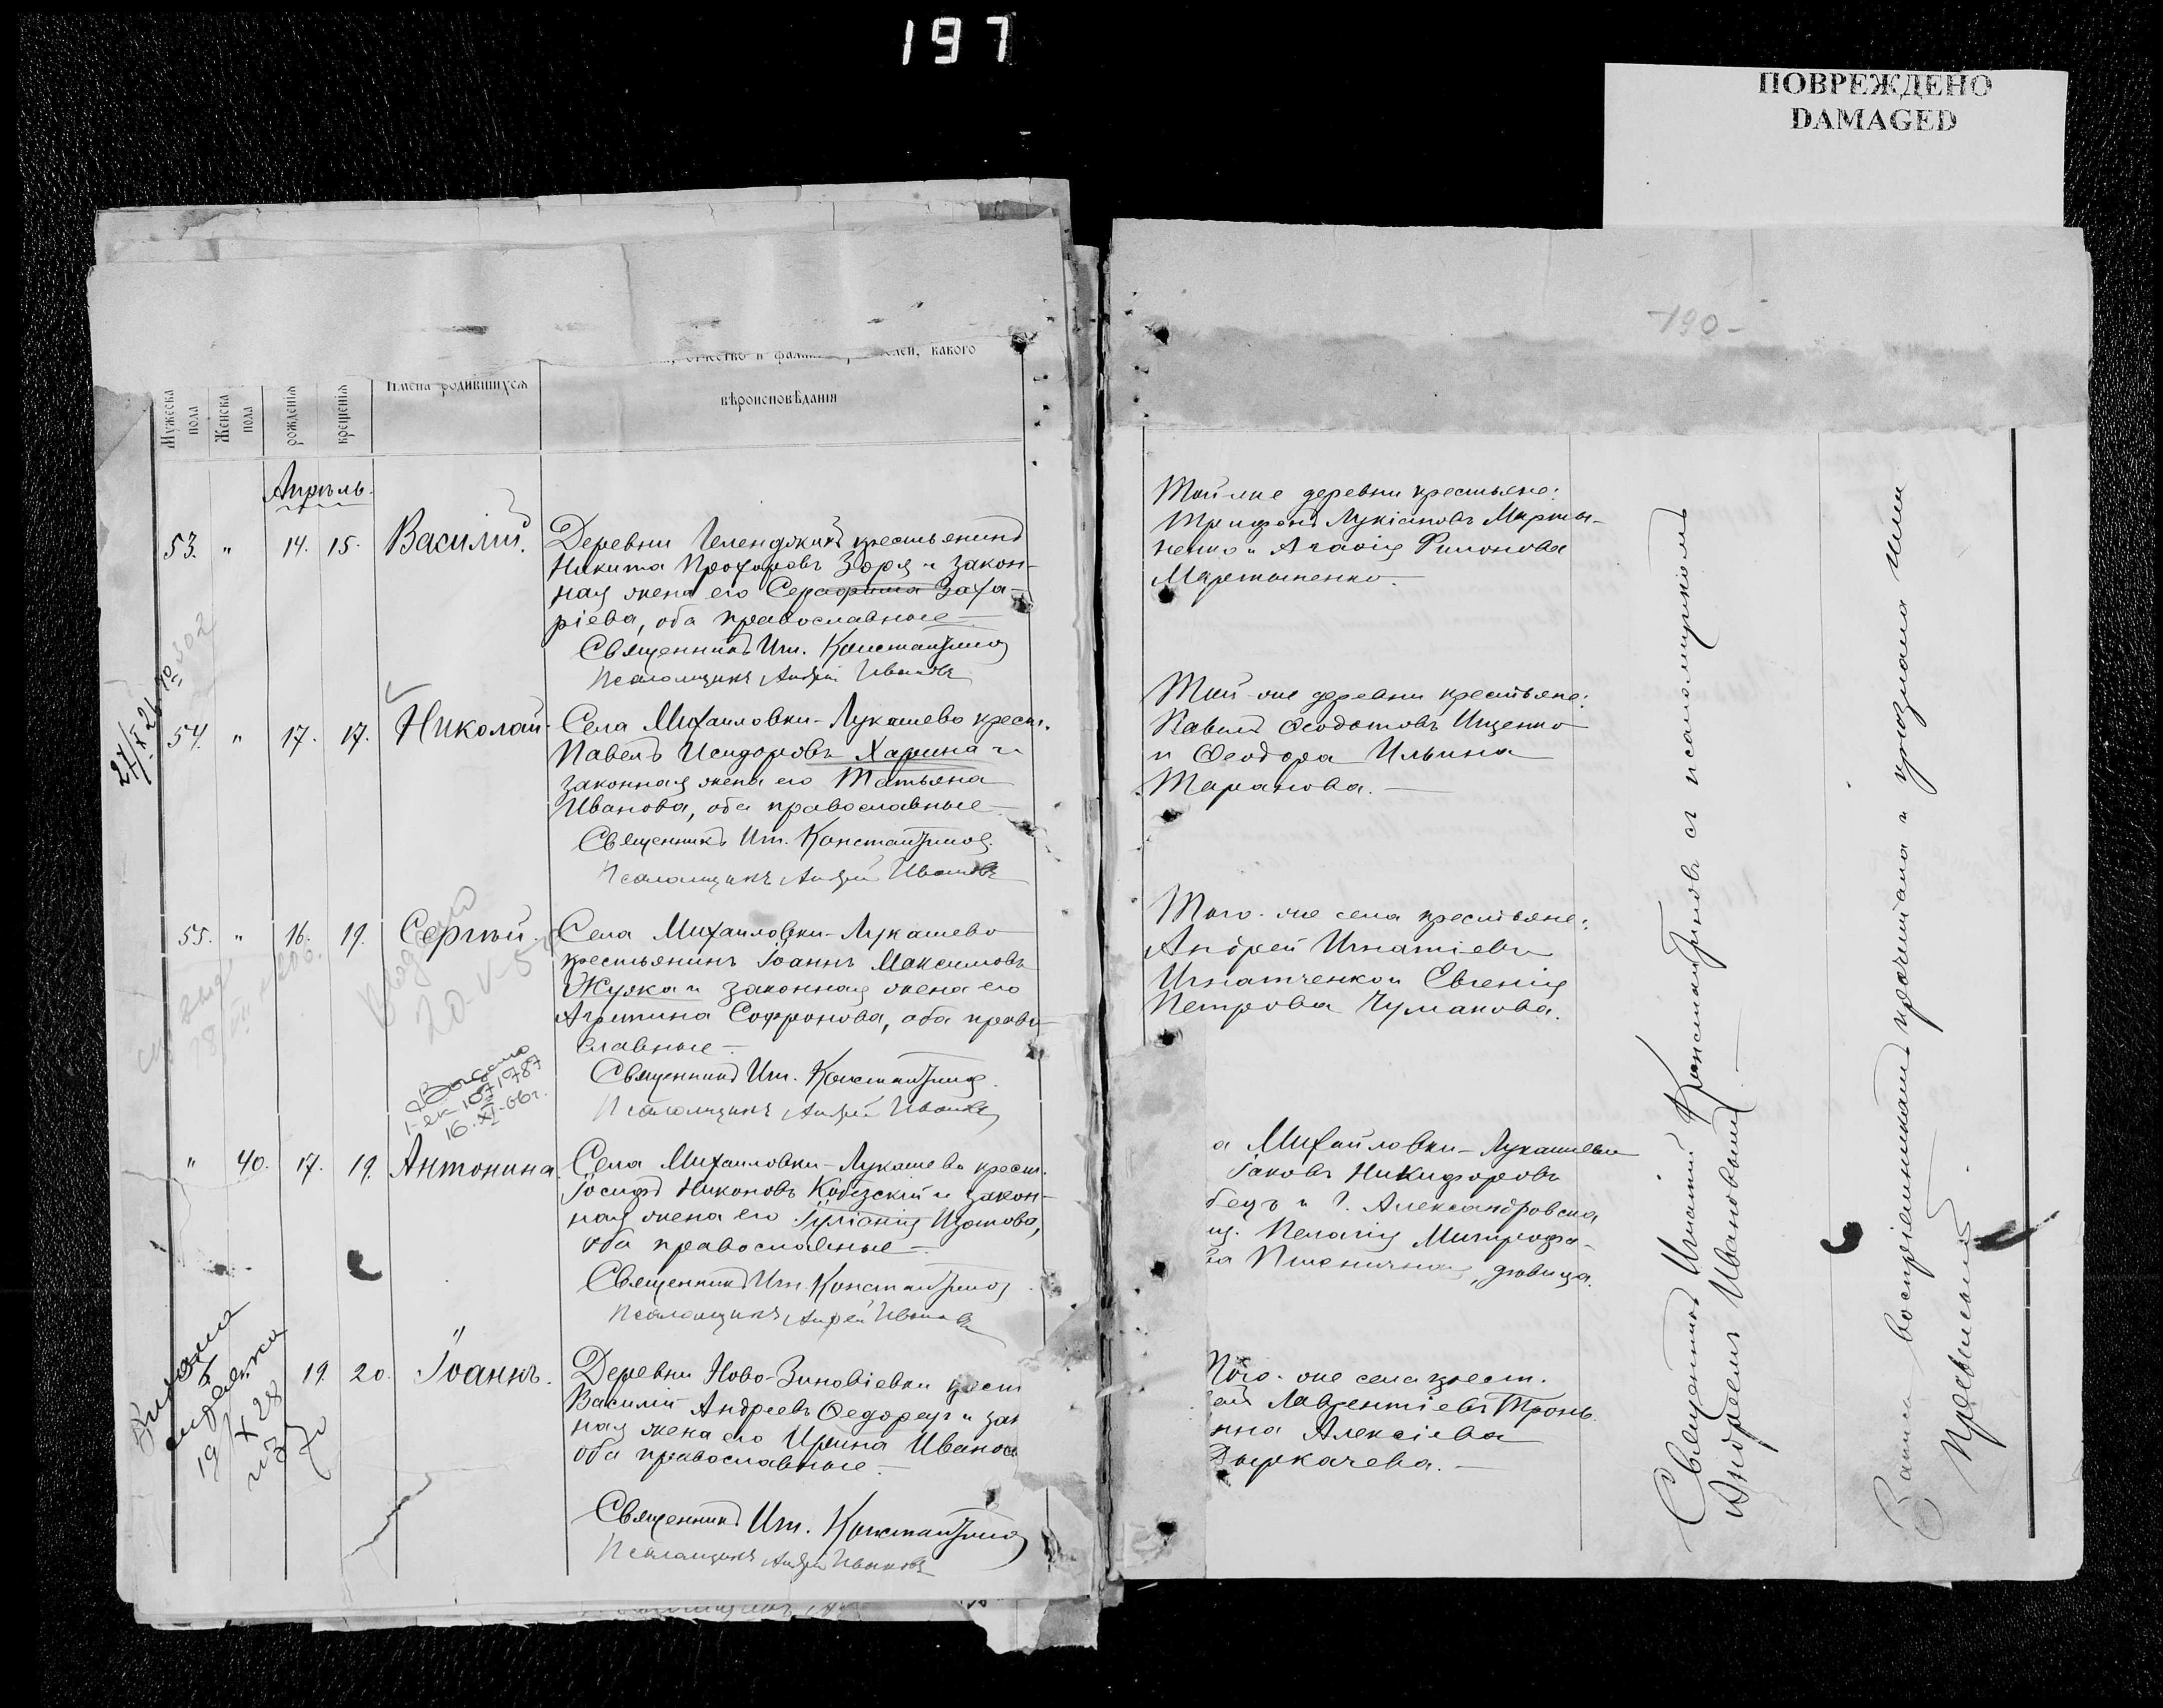 197
ПОВРЕЖДЕНО
DAMAGED
-190-
отчество и какого
Мужеска пола
Женска пола
рожденія
крещенія
Имена родившихся
вѣроисповѣданія
Апрѣль.
53. " 14. 15. Василій.
Деревни Геленджикъ крестьянинъ
Никита Прохоровъ Зоря и закон-
ная жена его Серафима Заха-
ріева, оба православные
Священникъ Игн. Константиновъ
Псаломщикъ Андрей Ивановъ
54. " 17. 17. Николай.
Села Михайловки-Лукашево крест.
Павелъ Исидоровъ Харина и
законная жена его Татьяна
Иванова, оба православные
Священникъ Игн. Константиновъ.
Псаломщикъ Андрей Ивановъ
55. " 16. 19. Сергѣй.
Села Михайловки-Лукашево
крестьянинъ Іоаннъ Максимовъ
Жужка и законная жена его
Агрипина Софронова, оба право-
славные
Священникъ Игн. Константиновъ.
Псаломщикъ Андрей Ивановъ
20-V-5
16.XI-66г.
" 40. 17. 19. Антонина
Села Михайловки-Лукашево крест.
Іосифъ Никоновъ Кобзскій и закон-
ная жена его Іуліанія Изотова,
оба православные
Священникъ Игн. Константиновъ
Псаломщикъ Андрей Ивановъ
19. 20. Іоаннъ.
Деревни Ново-Зиновіевки крест
Василій Андреевъ Ѳедорецъ и зак
ная жена его Ирина Иванов
оба православные
Священникъ Игн. Константиновъ
Псаломщикъ Андрей Ивановъ
Той-же деревни крестьяне:
Трифонъ Лукіановъ Марты-
ненко и Агафія Филонова
Мартыненко.
Той-же деревни крестьяне:
Павелъ Ѳеодотовъ Ищенко
и Ѳеодора Ильина
Таранова.
Того-же села крестьяне:
Андрей Игнатіевъ
Игнатченко и Евгенія
Петрова Чумакова.
а Михайловки-Лукашево
Іаковъ Никифоровъ
бецъ и г. Александровска
щ. Пелагія Митрофа-
ва Пшеничная, дѣвица.
Того-же села крест.
ей Лаврентіевъ Тронь
нна Алексіева
Дыркачева.
Священникъ Игнатій Константиновъ съ псаломщикомъ
Андреемъ Ивановымъ.
воспріемниками прочитана и признана ими
правильной.